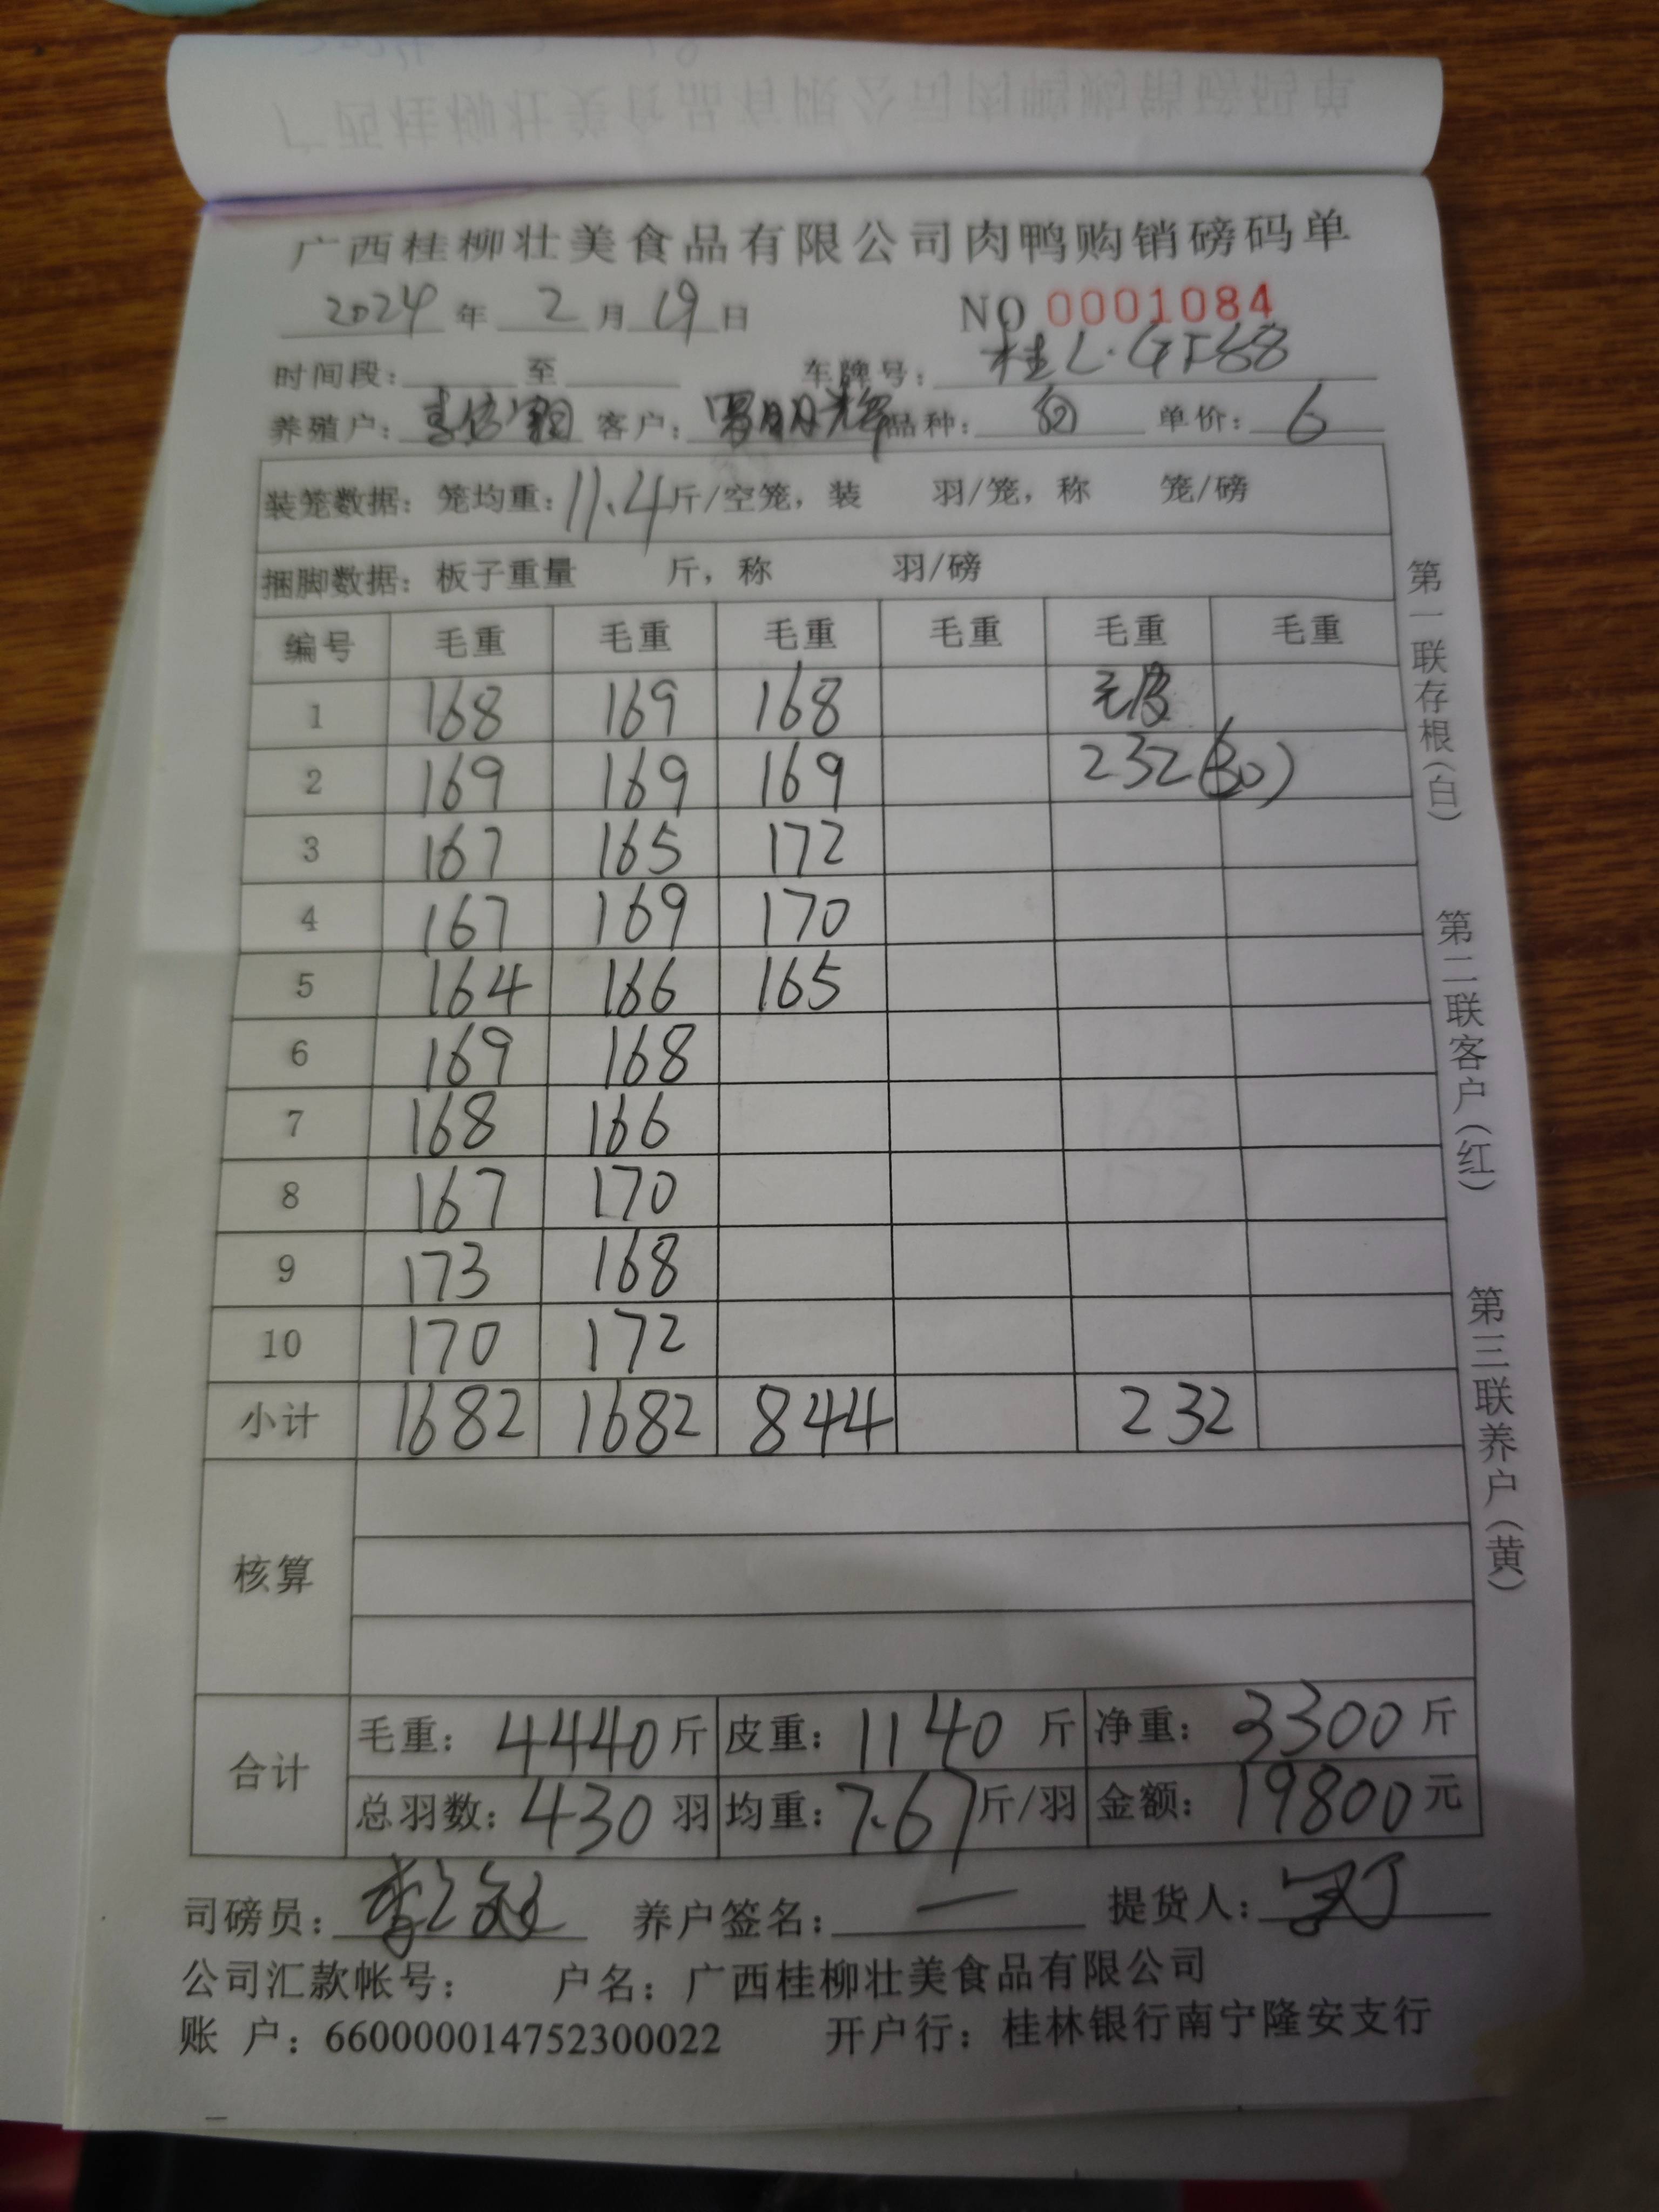 广西桂柳壮美食品有限公司肉鸭购销磅码单
2024年 2月19日 NO 0001084
时间段: 至 车牌号: 桂L·GF88
养殖户: 客户: 罗明辉 品种: 白 单价: 6
装笼数据: 笼均重: 11.4斤/空笼, 装 羽/笼, 称 笼/磅
捆脚数据: 板子重量 斤, 称 羽/磅
编号 毛重 毛重 毛重 毛重 毛重 毛重
1 168 169 168 无皮
2 169 169 169 232(30)
3 167 165 172
4 167 169 170
5 164 166 165
6 169 168
7 168 166
8 167 170
9 173 168
10 170 172
小计 1682 1682 844 232
核算
合计
毛重: 4440斤 皮重: 1140斤 净重: 3300斤
总羽数: 430羽 均重: 7.67斤/羽 金额: 19800元
司磅员: 养户签名: 一 提货人:
公司汇款帐号: 户名: 广西桂柳壮美食品有限公司
账 户: 660000014752300022 开户行: 桂林银行南宁隆安支行
第一联存根(白)
第二联客户(红)
第三联养户(黄)